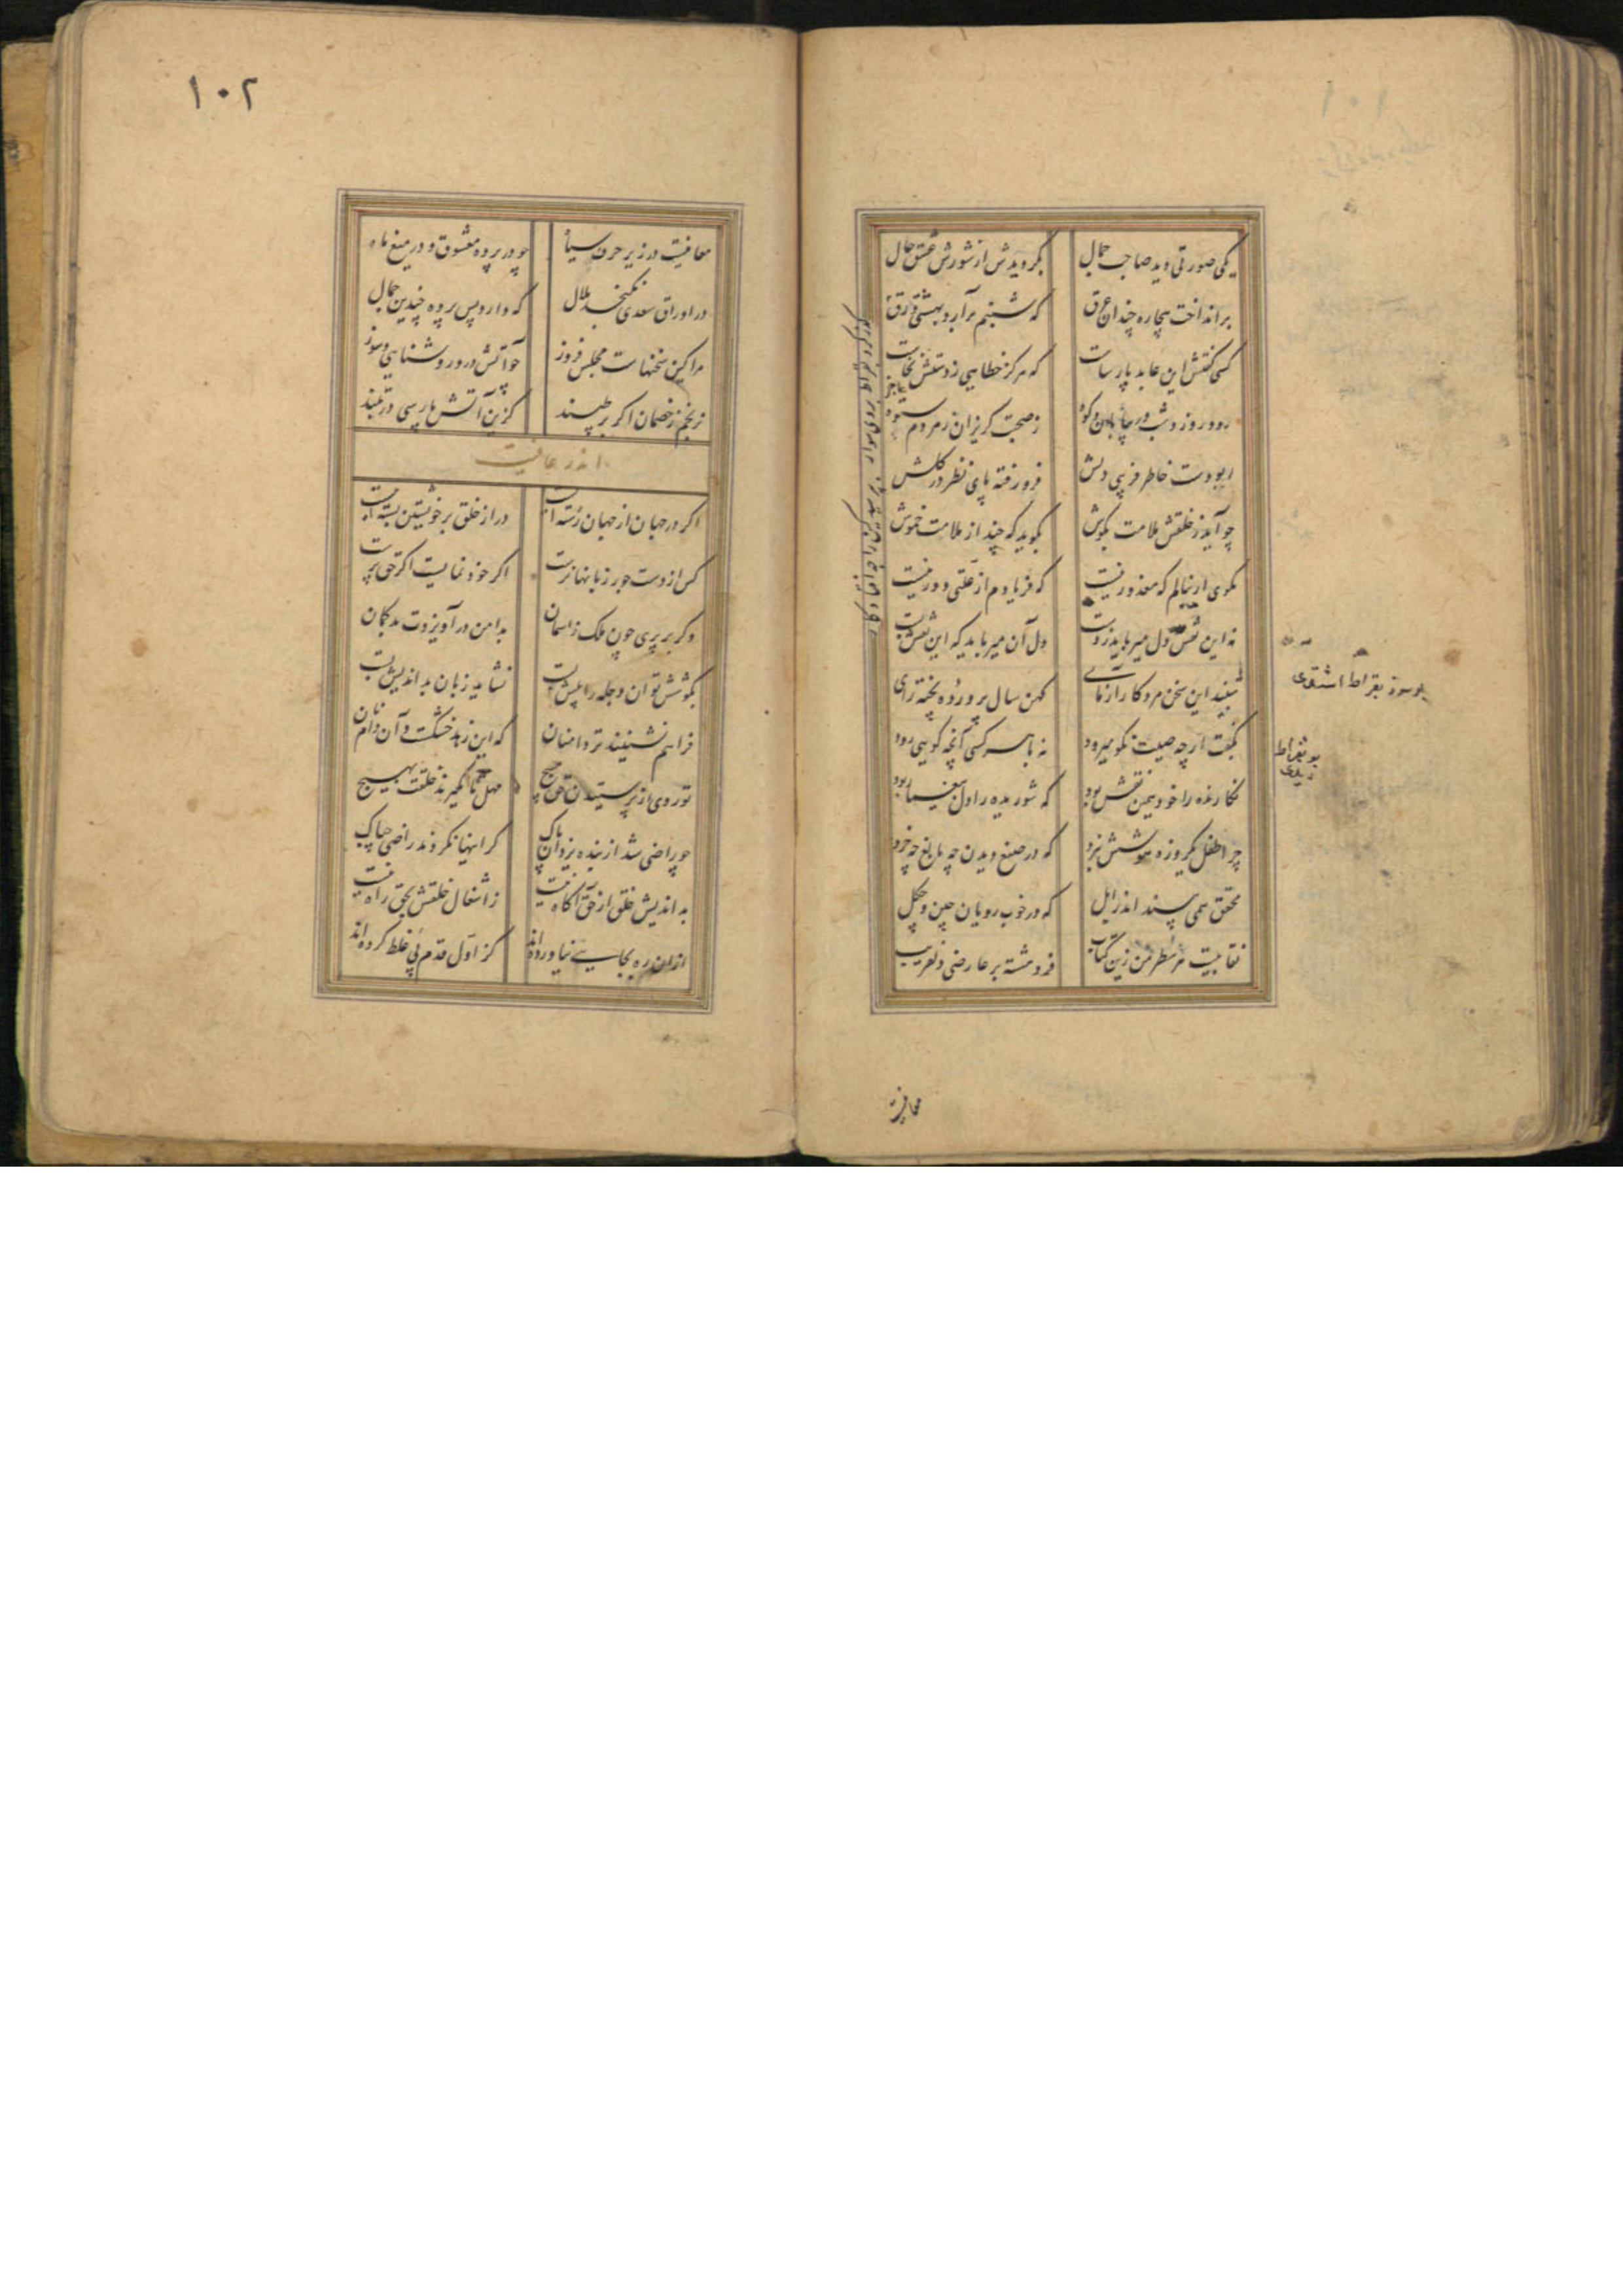 یکی صورتی دید صاحب جمال
بگردیدش از شورش عشق حال
برانداخت بیچاره چندان عرق
که شبنم بر آرد بهشتی ورق
کسی گفتش این عابد پارسات
که هرگز خطایی ز دستش نخاست
رود روز و شب در بیابان و کوه
ز صحبت گریزان ز مردم ستوه
ربودست خاطر فریبی دلش
فرو رفته پای نظر در گلش
چو آید ز خلقش ملامت بگوش
بگوید که چند از ملامت خموش
مگوی ار بنالم که معذور نیست
که فریادم از علتی دور نیست
نه این نقش دل میرباید ز دست
دل آن میرباید که این نقش بست
شنید این سخن مرد کار ازمای
کهن سال پرورده پخته رای
بگفت ارچه صیت نکو میرود
نه با هر کسی آنچه گویی رود
نگارنده را خود همین نقش بود
که شوریده را دل بیغما ربود
چرا طفل یکروزه هوشش نبرد
که در صنع دیدن چه بالغ چه خرد
محقق همی بیند اندر ابل
که در خوب رویان چین و چگل
نقابیست هر سطر من زین کتاب
فروهشته بر عارضی دلفریب
بقراط
معانیست
۱۰۱
۱۰۲
معانیست در زیر حرف سیاه
چو در پرده معشوق و در میغ ماه
در اوراق سعدی نگنجد ملال
که دارد پس پرده چندین جمال
مرا کین سخنهاست مجلس فروز
چو آتش درو روشنایی و سوز
نرنجم ز خصمان اگر بر طپند
کزین آتش پارسی در تبند
اندر عافیت
اگر در جهان از جهان رسته ایست
در از خلق بر خویشتن بسته ایست
کس از دست جور زبانها نرست
اگر خود نمایست اگر حق پرست
وگر بر پری چون ملک ز آسمان
بدامن در آویزدت بد گمان
بکوشش توان دجله را پیش بست
نشاید زبان بد اندیش بست
فراهم نشینند تر دامنان
که این زهد خشکست و آن دام نان
تو روی از پرستیدن حق مپیچ
مهل تا نگیرند خلقت بهیچ
چو راضی شد از بنده یزدان پاک
گر اینها نگردند راضی چباک
بد اندیش خلق از حق آگاه نیست
ز اشغال خلقش بحق راه نیست
ازان ره بجایی نیاورده اند
کز اول قدم پی غلط کرده اند